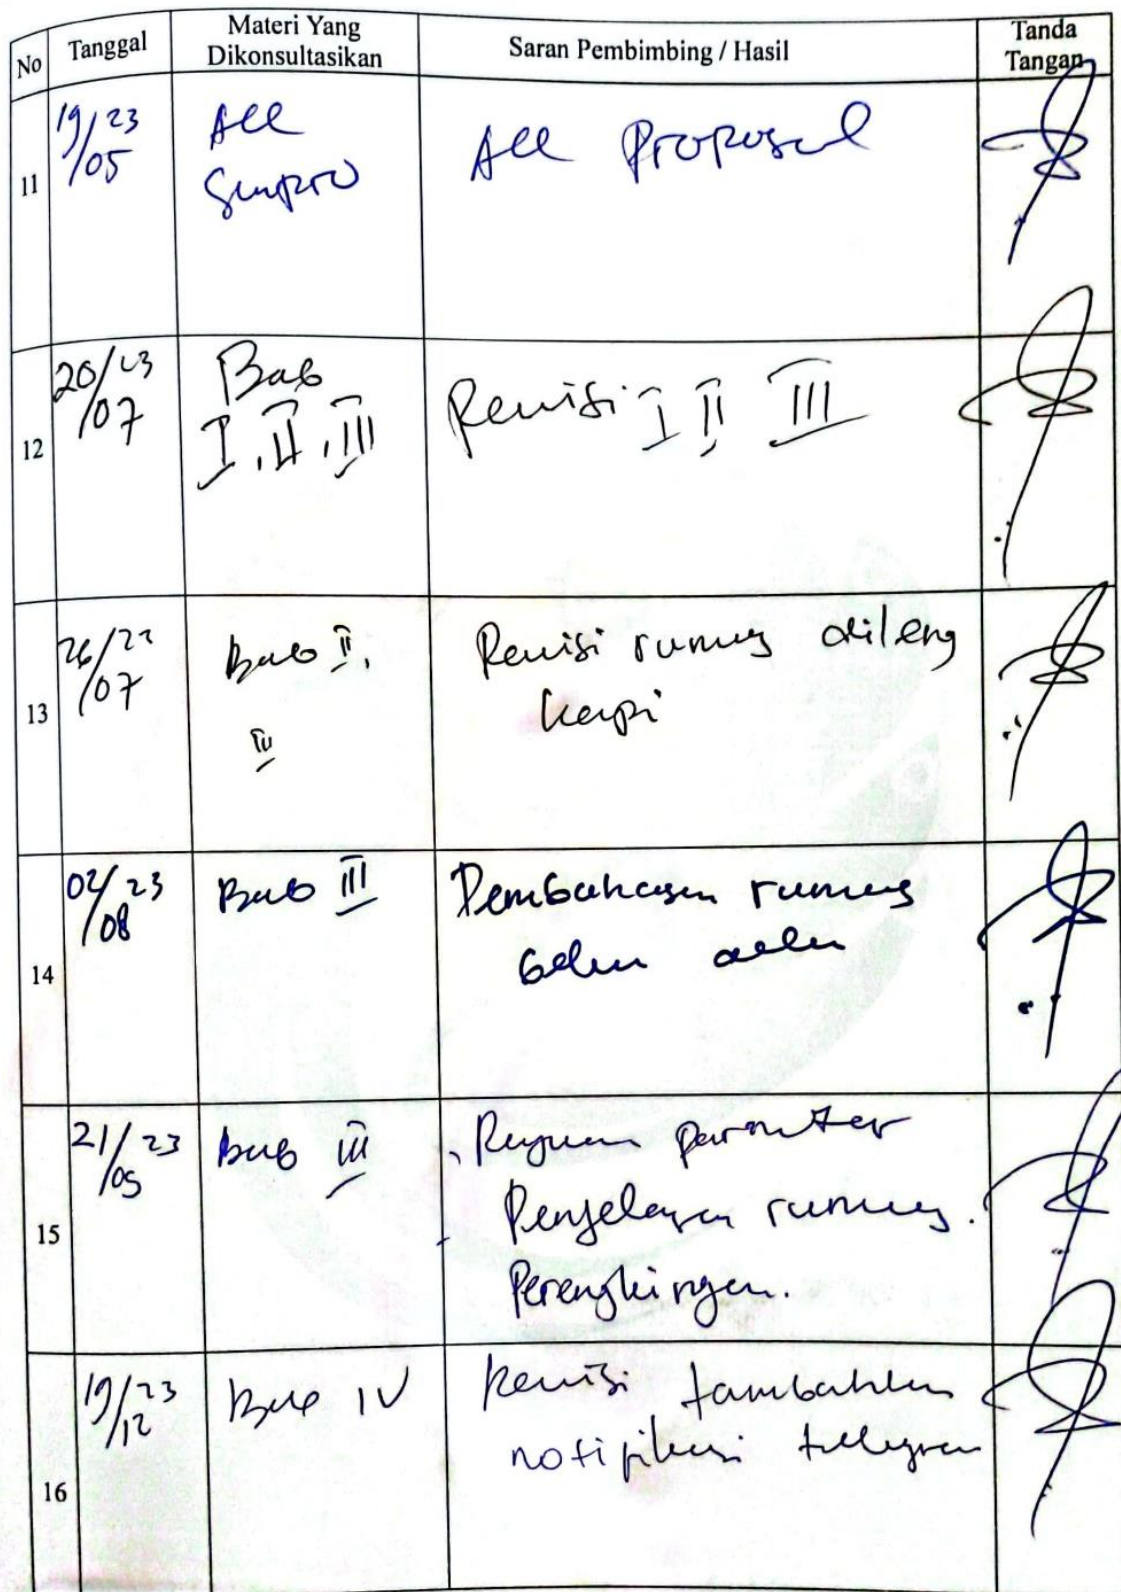 No
Tanggal
Materi Yang
Dikonsultasikan
Saran Pembimbing / Hasil
Tanda
Tangan
11
19/23
/05
Acc
Sempro
Acc Proposal
12
20/23
/07
Bab
I, II, III
Revisi I II III
13
26/23
/07
Bab II,
Revisi rumus dileng
kapi
14
02/23
/08
Bab III
Pembahasan rumus
belum
15
21/23
Bab III
Penjelasan rumus.
Perengkingan.
16
19/23
/12
Bab IV
Revisi tambahkan
notifikasi telegram